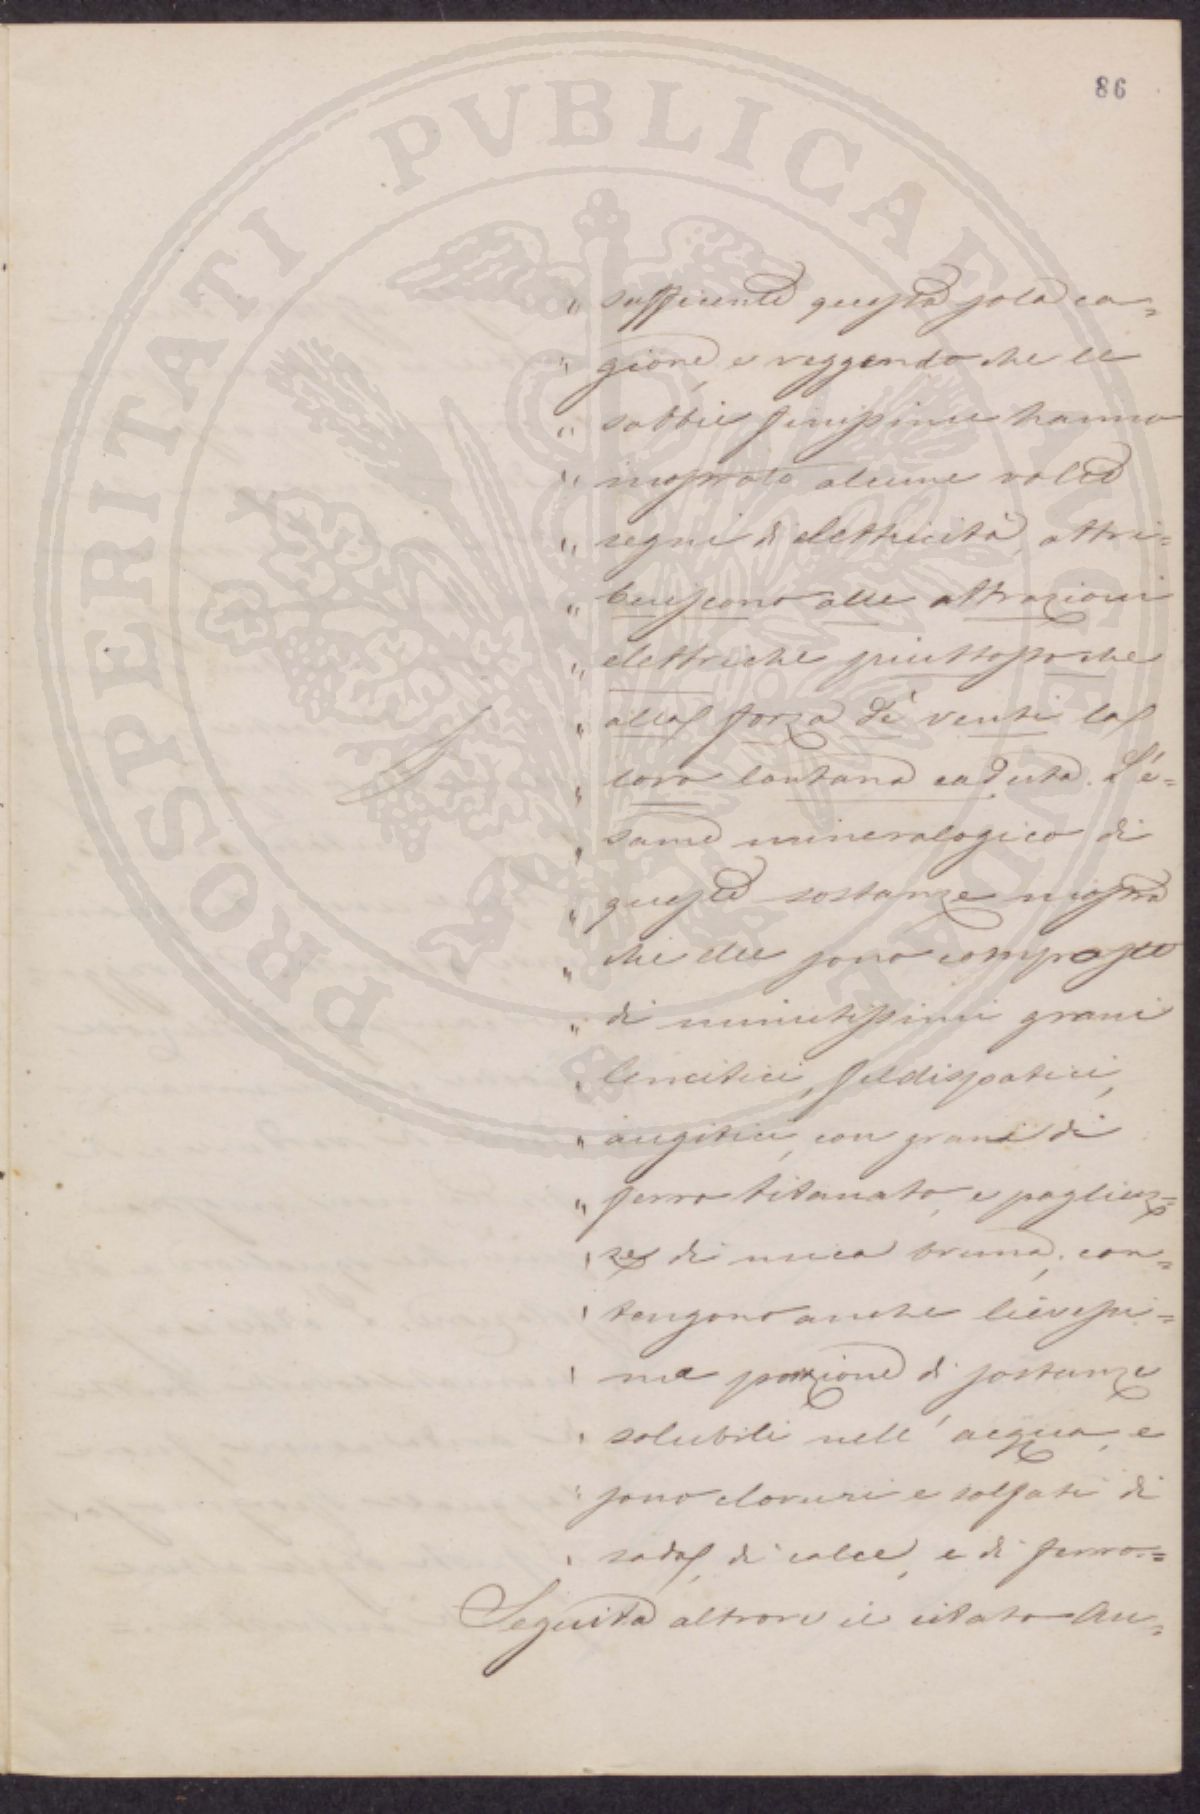 86
PROSPERITATI PVBLICAE AVGENDAE
" sufficiente questa sola ca=
" gione, e veggendo che le
" sabbie finissime hanno
" mostrato alcune volte
" segni di elettricità, attri=
" buiscono alle attrazioni
" elettriche piuttosto che
" alla forza de' venti la
" loro lontana caduta. L'e=
" same mineralogico di
" queste sostanze mostra
" che elle sono composte
" di minutissimi grani
" leucitici, feldispatici,
" augitici, con grani di
" ferro titanato, e pagliuz=
" ze di mica bruna, con=
" tengono anche lievissi=
" ma porzione di sostanze
" solubili nell' acqua, e
" sono cloruri e solfati di
" soda, di calce, e di ferro.=
Seguita altrove il citato Au=